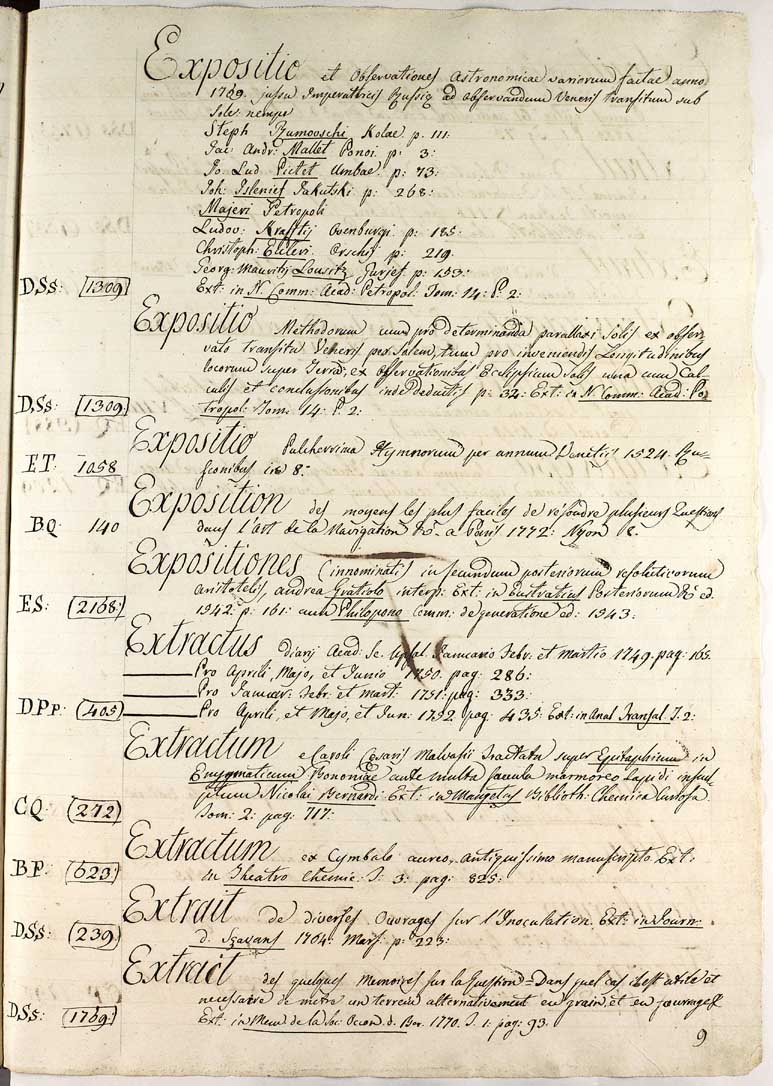 Expositio et Observationes Astronomicae variorum factae anno
1769. jussu Imperatricis Russiæ ad observandum Veneris transitum sub
Sole: nempe
Steph Rumovschi Kolae p. 111:
Jac: Andr: Mallet Ponoi p: 3:
Jo: Lud Pictet Umbae p: 73:
Joh: Islenief Jakutski p: 268:
Majeri Petropoli
Ludov: Krafftij Orenburgi p: 185:
Christoph: Euleri Orschij p: 219.
Georg: Mauritij Lousitz Gurjef p: 153:
D.Ss: 1309 Ext: in N. Comm: Acad: Petropol: Tom: 14: P. 2:
Expositio Methodorum cum pro determinanda parallaxi Solis ex obser-
vato transitu Veneris per Solem, tum pro inveniendis Longitudinibus
locorum super Terra, ex observationibus Eclipsium Solis una cum Cal-
culis et conclusionibus inde deductis p: 32: Ext: in N. Comm: Acad: Pe-
D.Ss: 1309 tropol: Tom: 14: P. 2:
Expositio Pulcherrima Hymnorum per annum Venetiis 1524. Ru-
ET. 1058 sconibus in 8.
Exposition des moyens les plus faciles de résoudre plusieurs Questions
BQ. 140 dans l'Art de la Navigation &c. a Paris 1772: Nyon 8.
Expositiones (innominati) in secundum posteriorum resolutivorum
Aristotelis, andrea Gratiolo interp: Ext: in Eustratius Posteriorum &c ed.
ES: 2168 1542: p: 161: cum Philopono Comm: de generatione ed: 1543:
Extractus diarij Acad: Sc. Upsal. Januario Febr: et Martio 1749. pag: 165.
Pro Aprili, Majo, et Junio 1750. pag: 286:
Pro Januar: Febr: et Mart: 1751: pag: 333:
D.Pp: 405 Pro Aprili, et Majo, et Jun: 1752 pag: 435: Ext: in Anal Transal T. 2:
Extractum e Caroli Cesaris Malvasii Tractatu super Epitaphium in
Enygmaticum Bononiae ante multa saecula marmoreo Lapidi inscu-
lptum Nicolai Bernardi: Ext: in Mangetus Biblioth: Chemica Curiosa
CQ. 272 Tom: 2: pag: 717:
Extractum ex Cymbalo aureo, antiquissimo manuscripto Ext:
BP. 623 in Theatro Chemic. T: 3: pag: 825:
Extrait de diverses Ouvrages sur l'Inoculation. Ext: in Journ
D.Ss: 239 d. Sçavans 1764: Mars p: 223:
Extrait des quelques Memoires sur la Question = Dans quel cas il est utile et
necessaire de metre un terrein alternativement en grain, et en fourrages
D.Ss: 1769 Ext: in Mem de la Soc: Oecon: d. Ber. 1770. T. 1: pag: 93.
9